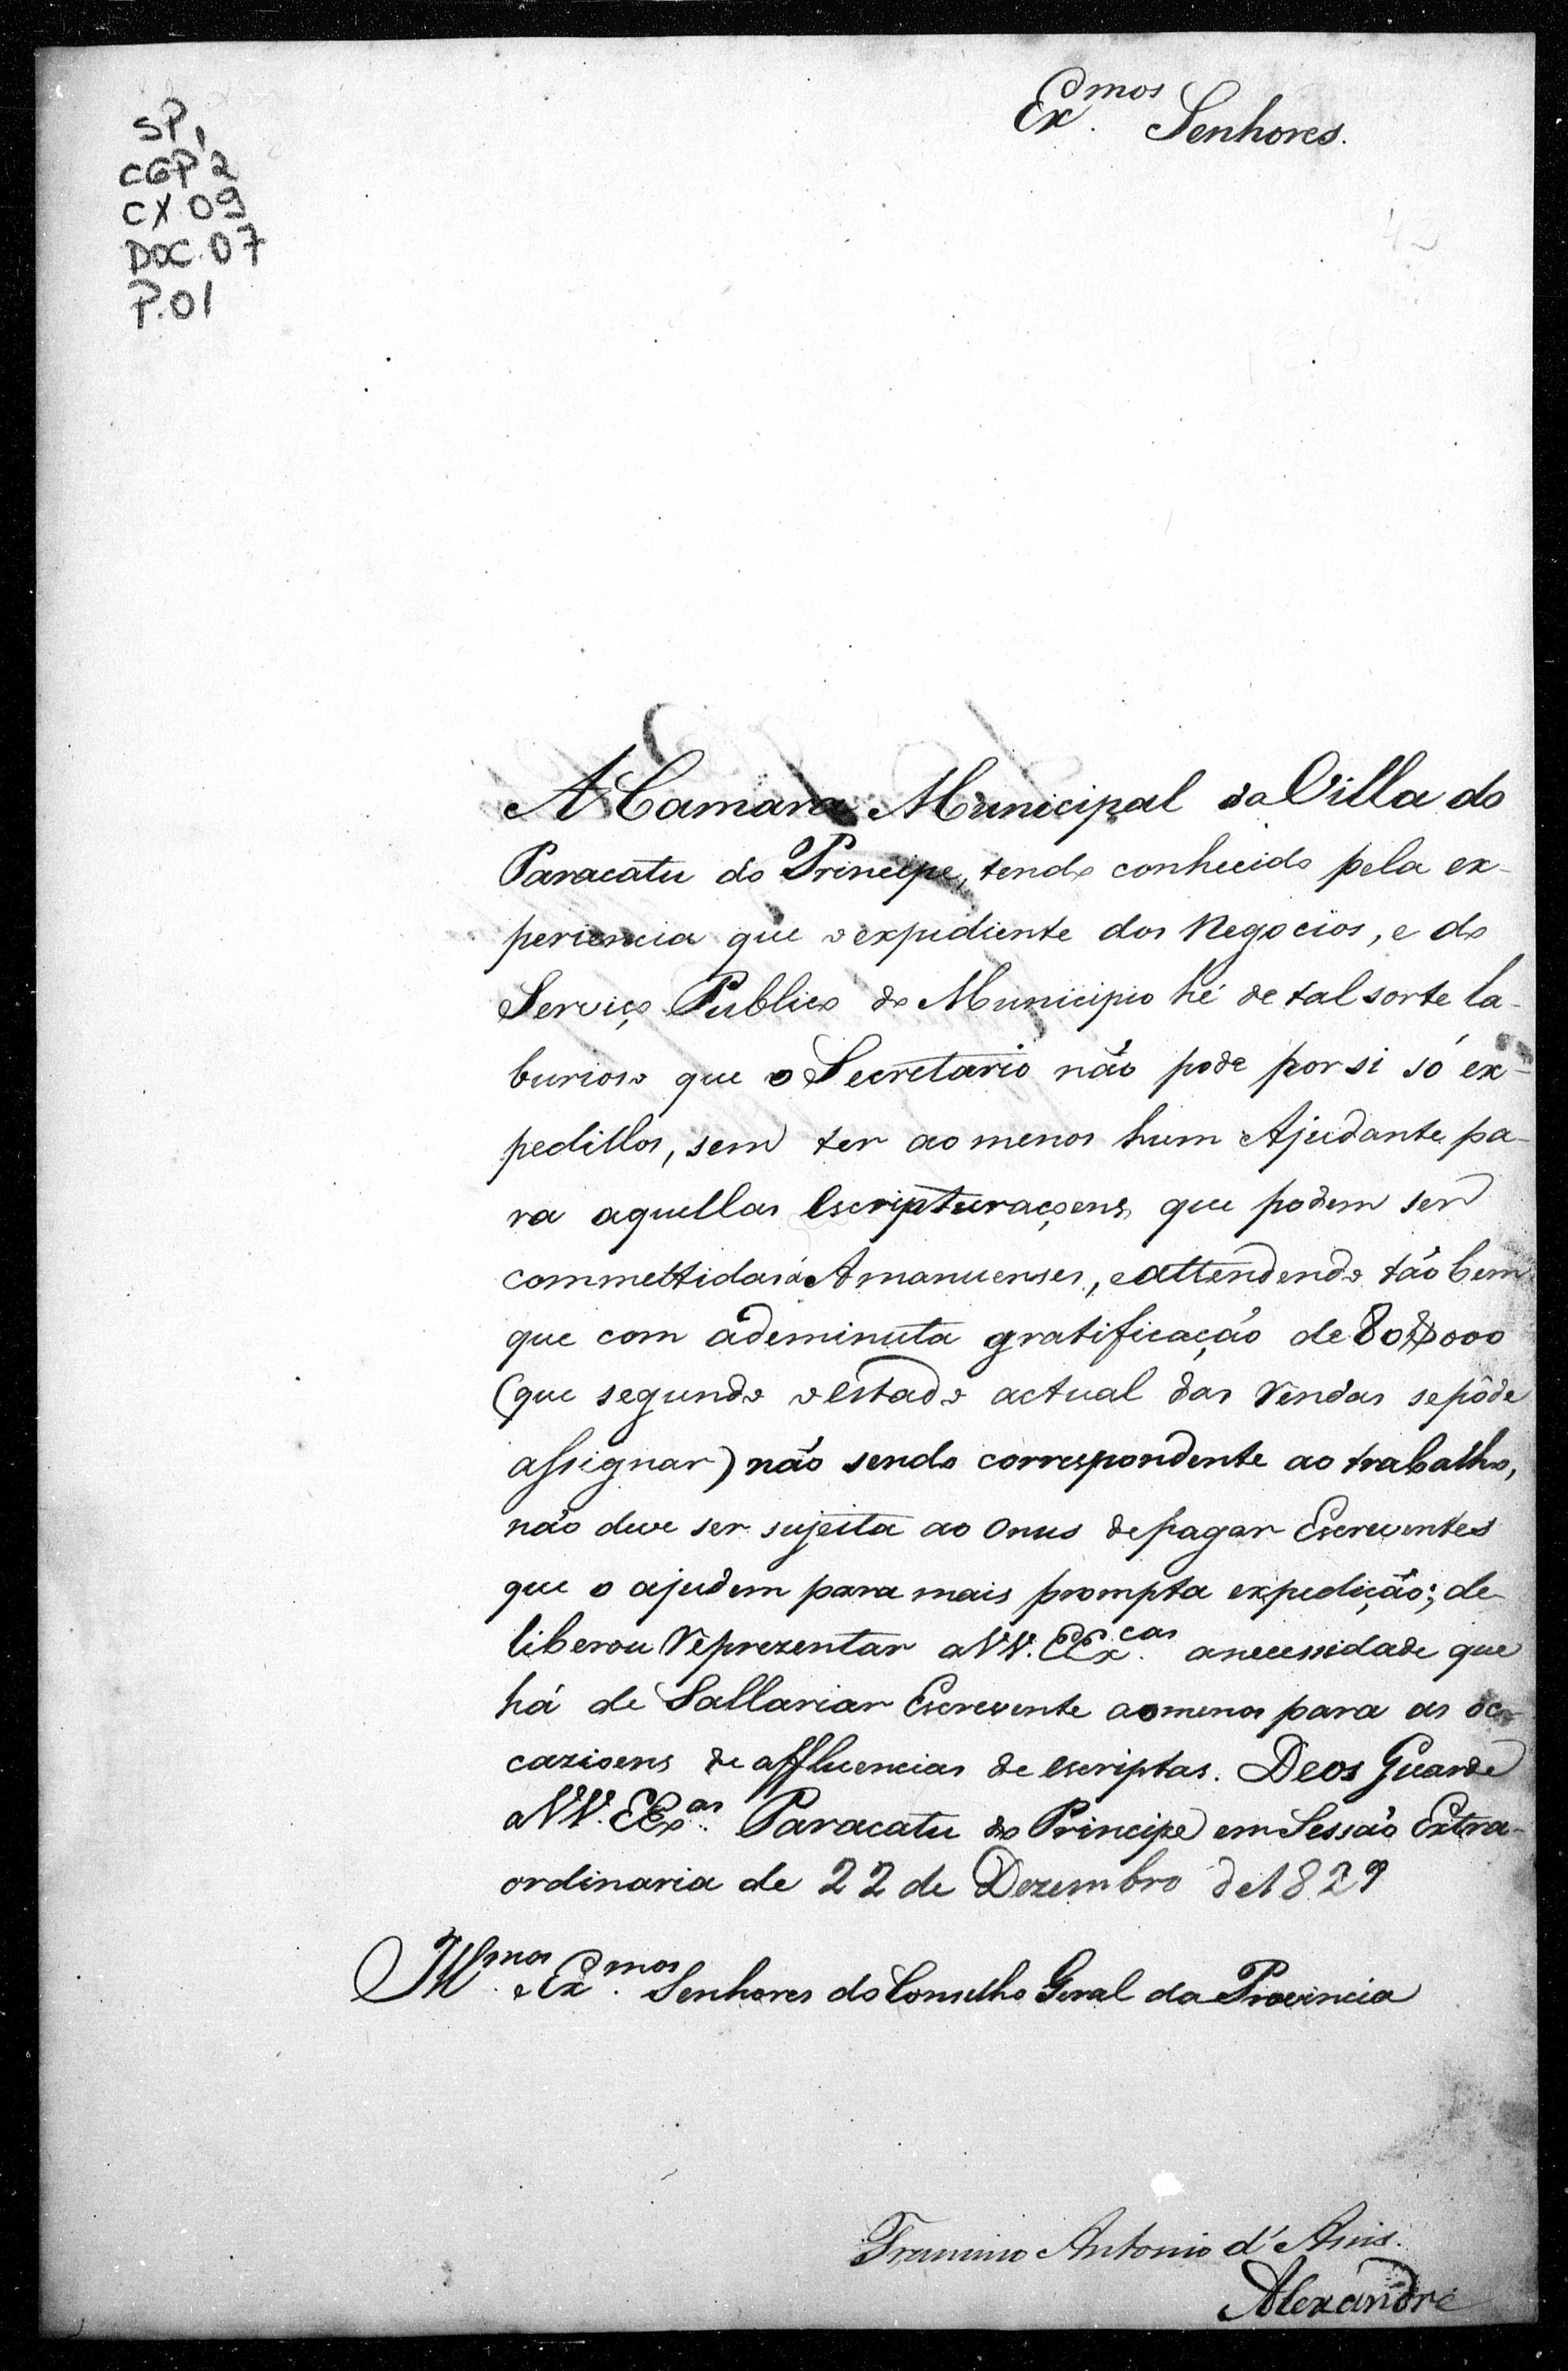 Exmos Senhores.
SP,
CGP 2
CX 09
DOC. 07
P.01
A Camara Municipal da Villa do
Paracatu do Principe, tendo conhecido pela ex-
periencia que o expediente dos Negocios, e do
Serviço Publico do Municipio hé de tal sorte la-
burioso que o Secretario não pode por si só ex-
pedillos, sem ter ao menos hum Ajudante pa-
ra aquellas Escripturaçoens que podem ser
commettidas á Amanuenses, e attendendo tão bem
que com a deminuta gratificação de 80$000
(que segundo o estado actual das Rendas se póde
assignar) não sendo correspondente ao trabalho,
não deve ser sujeita ao Onus de pagar Escreventes
que o ajudem para mais prompta expedição; de-
liberou Reprezentar a VV. EExcas a necessidade que
há de Sallariar Escrevente ao menos para as oc-
cazioens de affluencias de escriptas. Deos Guarde
a VV. EExas Paracatu do Principe em Sessão Extra-
ordinaria de 22 de Dezembro de 1829
Illmos e Exmos Senhores do Conselho Geral da Provincia
Antonio d'Assis.
Alexandre